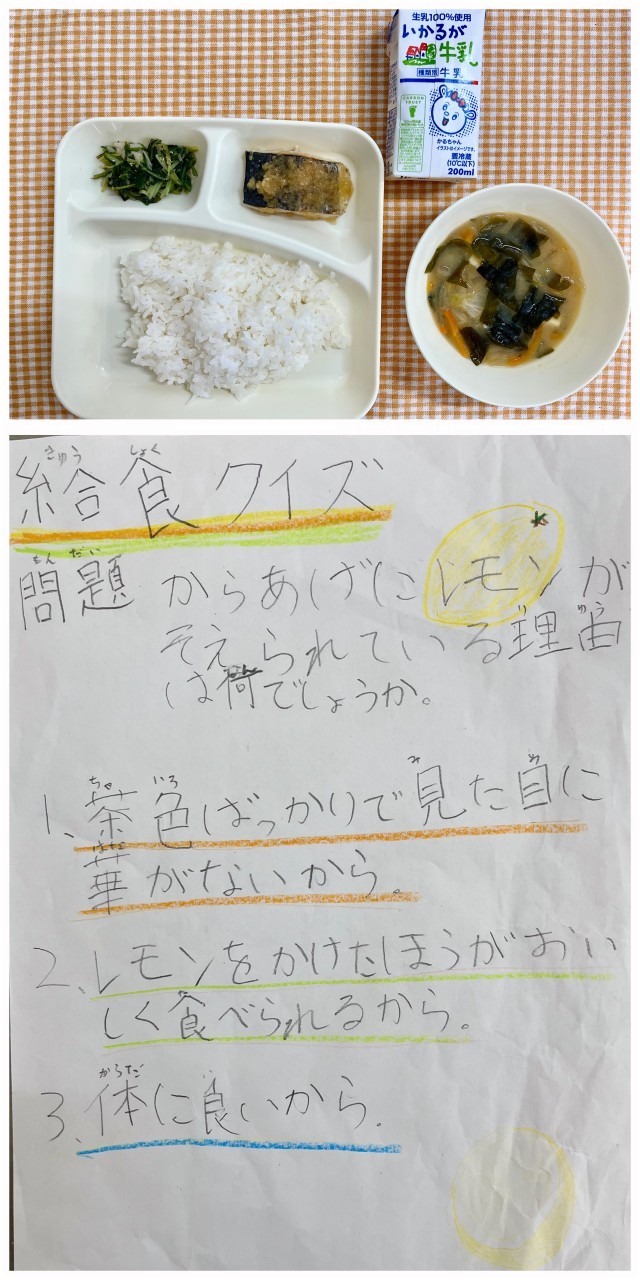 生乳100%使用
いかるが
牛乳
種類別 牛乳
CARBON TRUST
かるちゃん
イラストはイメージです。
要冷蔵
(10℃以下)
200ml
きゅう しょく
給食クイズ
もん だい
問題 からあげにレモンが
り ゆう
そえられている理由
なん
は何でしょうか。
ちゃ いろ み め
1、茶色ばっかりで見た目に
はな
華がないから。
2、レモンをかけたほうがおい
しく食べられるから。
からだ
3、体に良いから。